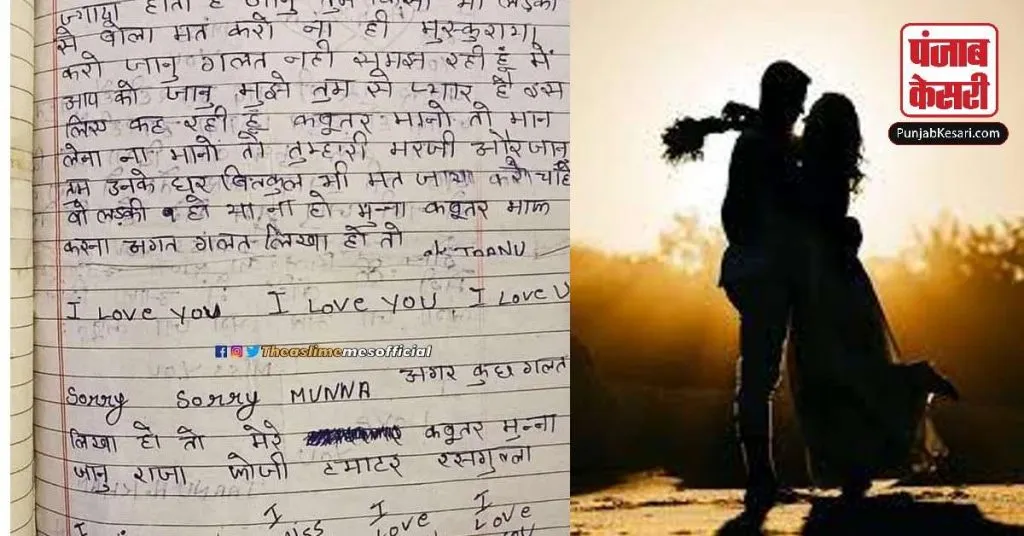 ज्यादा होता है जानु तुम किसी भी लड़की
से बोला मत करो ना ही मुस्कुराया
करो जानु गलत नही समझ रही हूँ में
आप को जानु मुझे तुम से प्यार है इस
लिए कह रही हूँ कबूतर मानो तो मान
लेना ना मानो तो तुम्हारी मरजी और जानु
तुम उनके घर बिलकुल भी मत जाया करो चाहे
वो लड़की हो या ना हो मुन्ना कबूतर माफ
करना अगर गलत लिखा हो तो ok JAANU
I Love you I Love you I Love U
Theaslimemesofficial
Sorry Sorry MUNNA अगर कुछ गलत
लिखा हो तो मेरे कबूतर मुन्ना
जानु राजा फोजी टमाटर रसगुल्ला
I I I
I MISS Love Love
पंजाब
केसरी
PunjabKesari.com